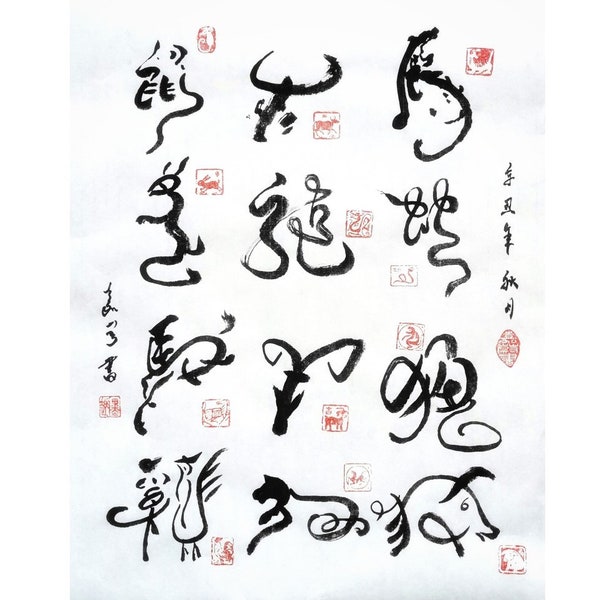 鼠 牛 虎
兔 龍 蛇
羊 猴
雞 狗 猪
辛丑年秋月
書